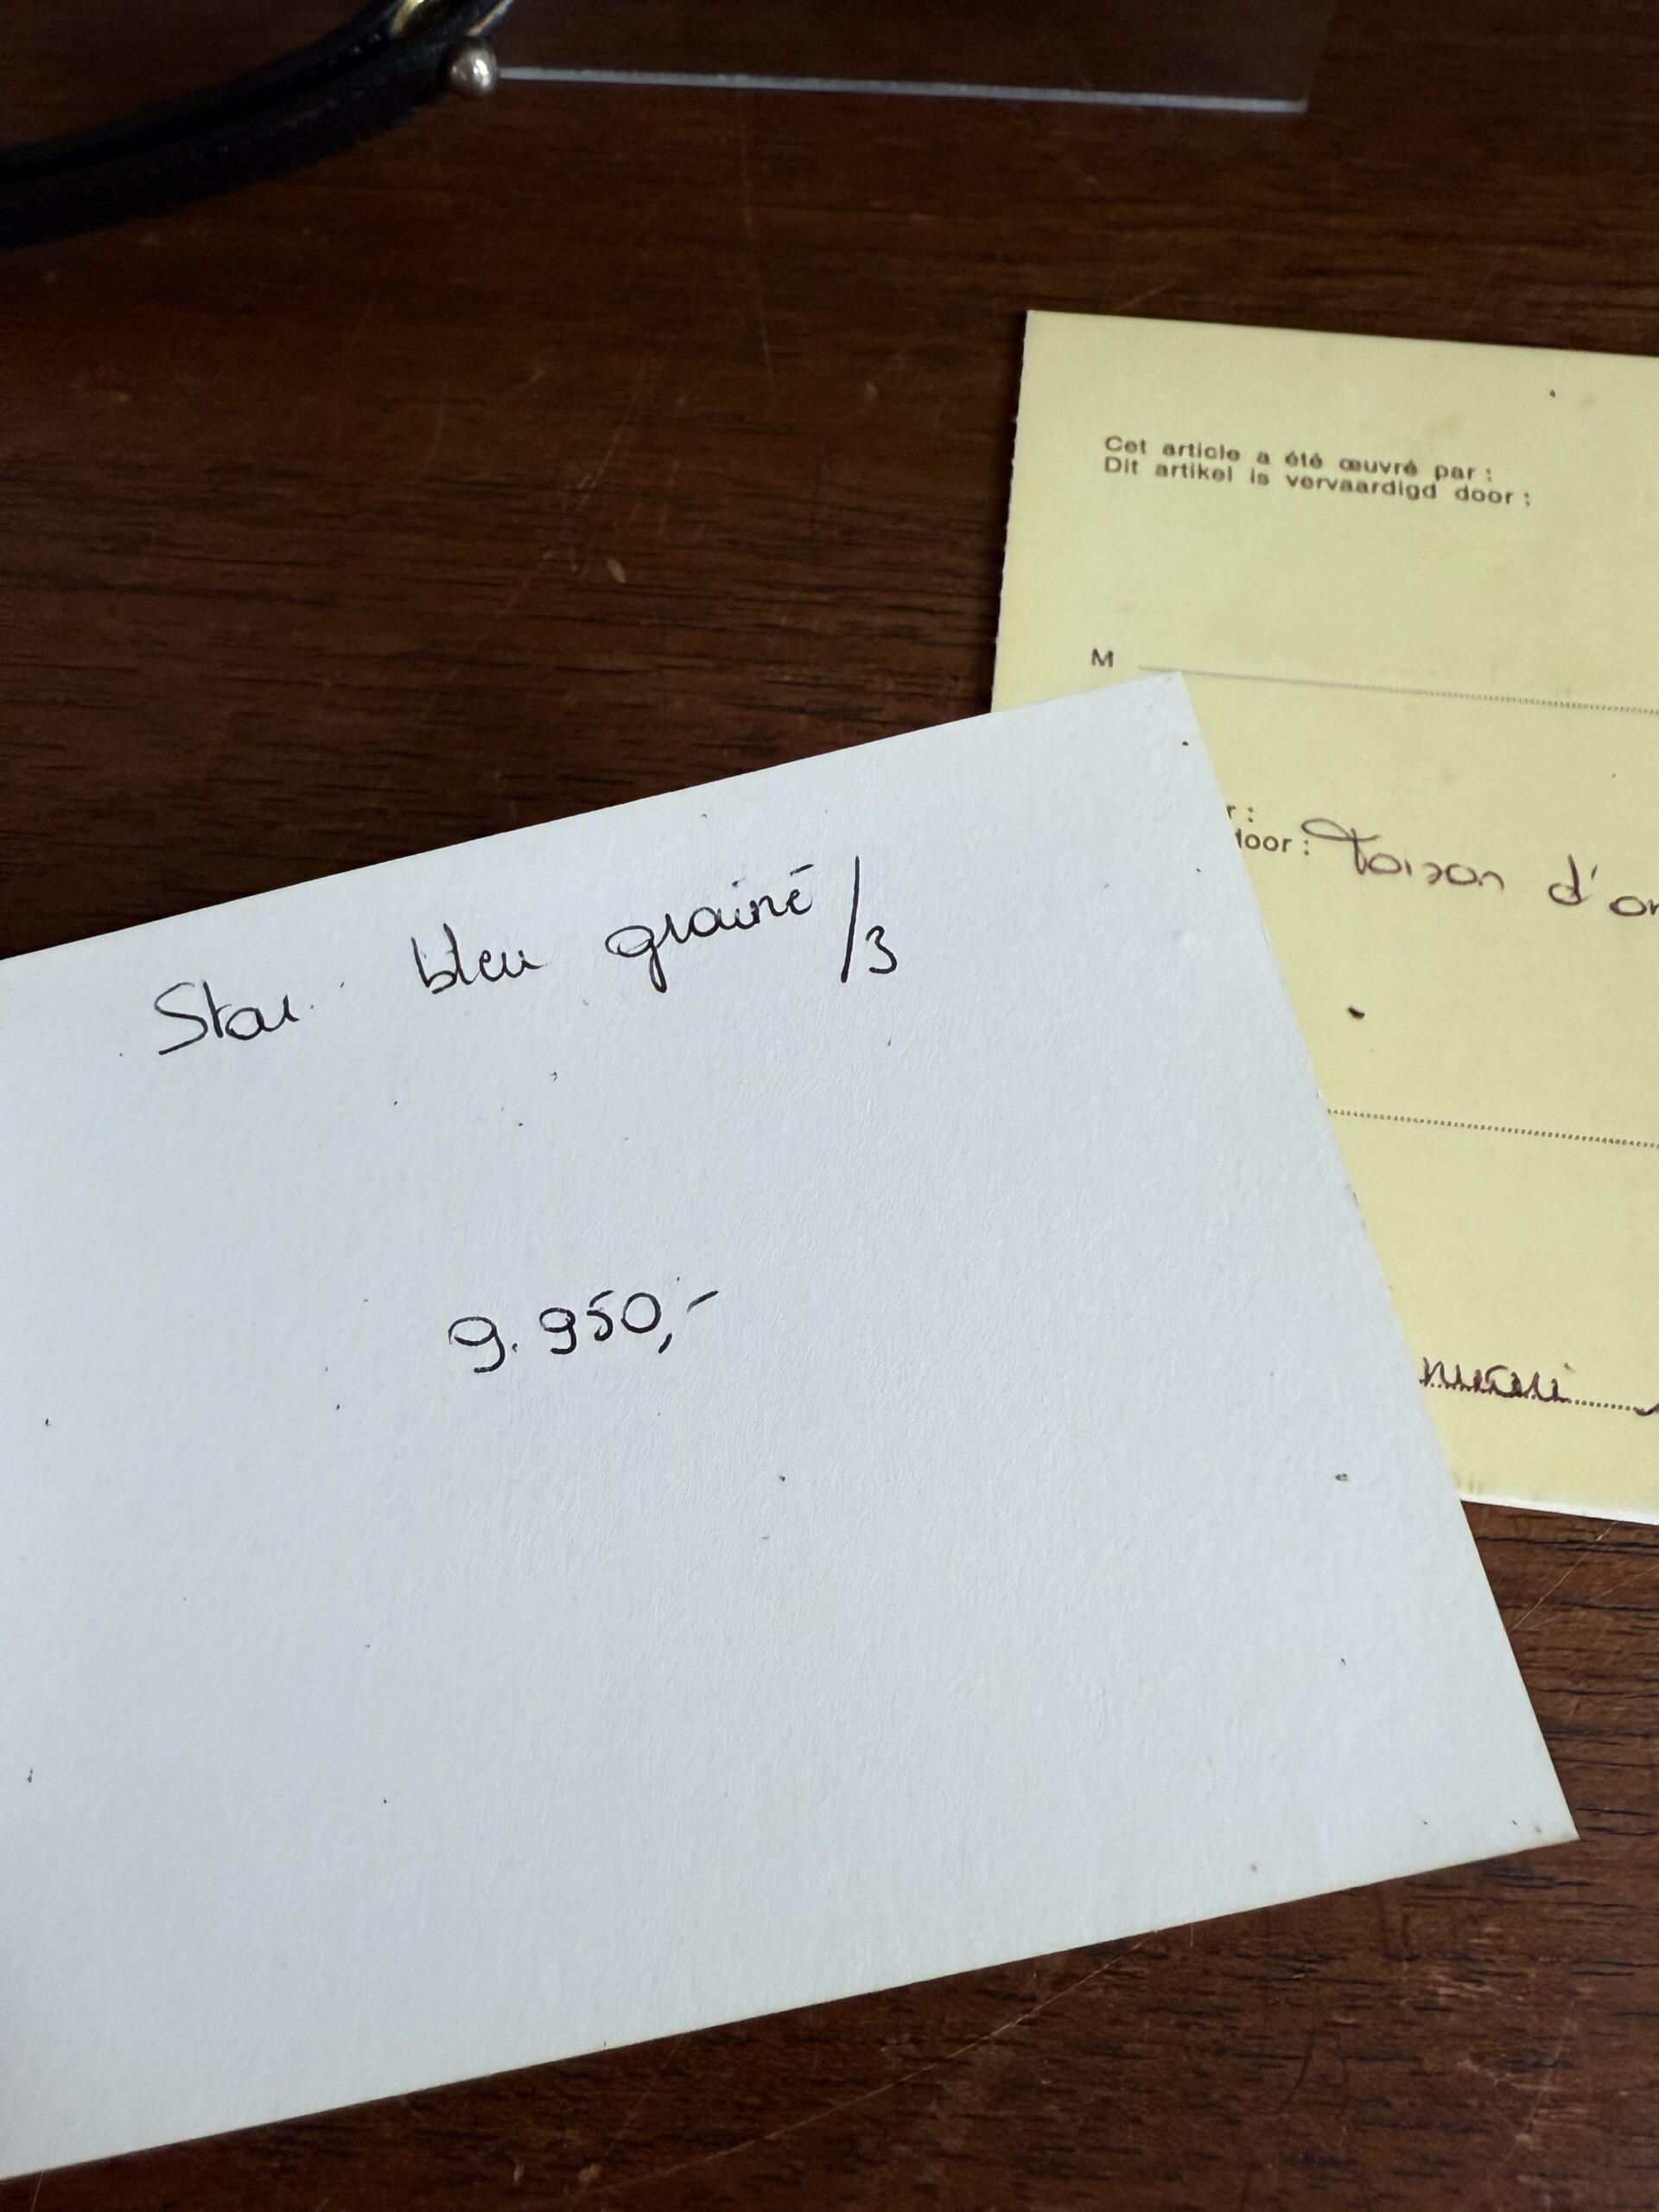 Star bleu grainé /3
9.950,-
Cet article a été œuvré par :
Dit artikel is vervaardigd door :
M
r :
door : Toison d'or